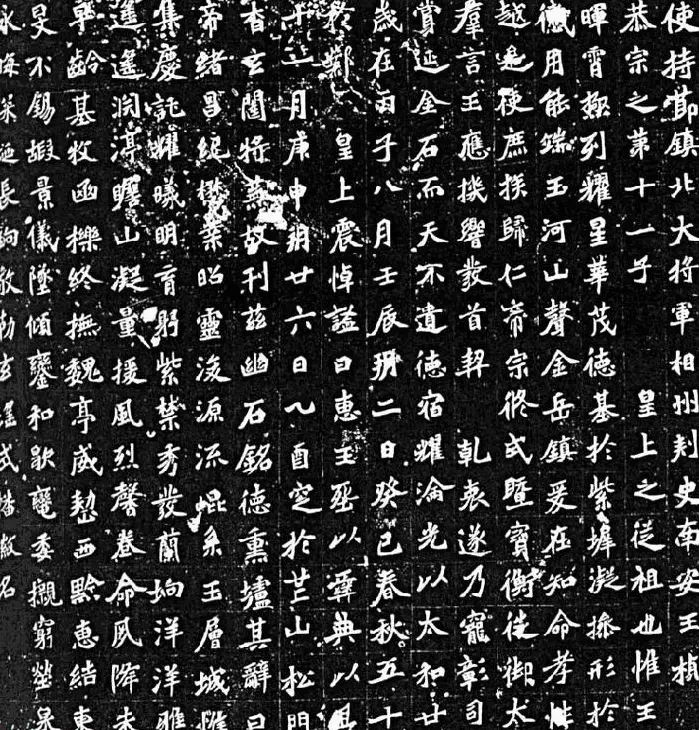 使持節鎮北大将軍相州刺史南安王楨
恭宗之第十一子皇上之従祖也惟王
暉霄極列耀星華茂德基於紫墀凝操形於
徽用能端玉河山聲金岳鎮爰在知命孝性
越是使庶族歸仁帝宗攸式暨寳衡徙御太
羣言王應機響發首契乹衷遂乃寵彰司
賞延金石而天不遺德宿耀淪光以太和廿
歳在丙子八月壬辰朔二日癸巳春秋五十
於鄴皇上震悼諡曰惠王塟以彛典以其
十一月庚申朔廿六日乙酉窆於芒山松門
杳玄闥将蕪故刊兹幽石銘德熏壚其辭曰
帝緒昌紀懋業昭靈浚源流崐系玉層城惟
集慶託耀曦明育躬紫禁秀發蘭坰洋洋雅
遥遥淵渟瞻山凝量援風烈馨卷命夙降未
乾齡基牧函櫟終撫魏亭威整西黔惠結東
旻不錫嘏景儀墜傾鑾和歇轙委櫬窮塋泉
永
長
敬勒玄
式播
名